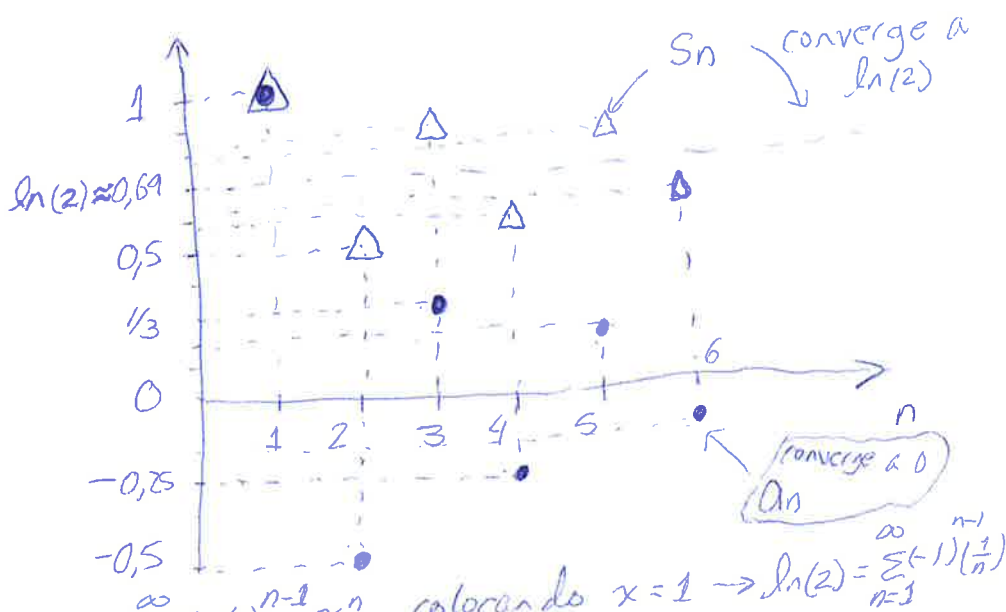 Sn converge a
ln(2)
1
ln(2)≈0,69
0,5
1/3
0
1 2 3 4 5 6
n
-0,25
converge a 0
an
-0,5
∞ n-1 n colocando x = 1 → ln(2) = ∑_{n=1}^{∞} (-1)^{n-1} (1/n)